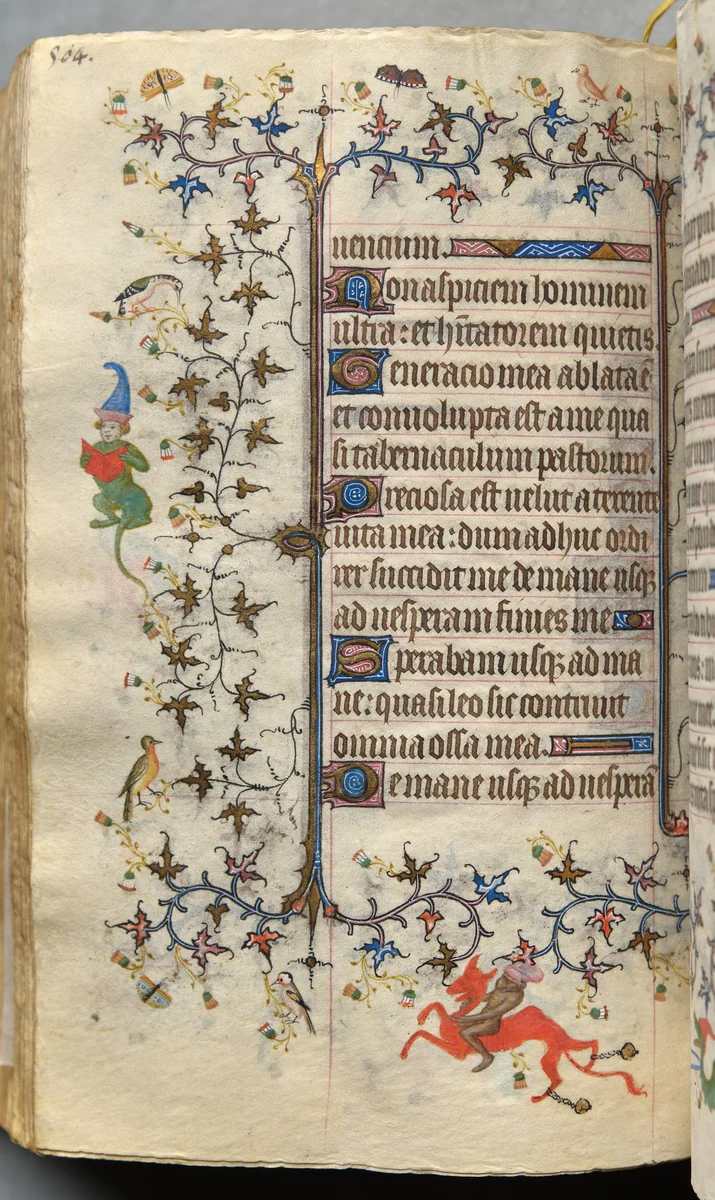 504.
uencium.
Non aspiciem hominem
ultra: et hītatorem quietis.
Generacio mea ablata ē
et conuoluta est a me qua
si tabernaculum pastorum.
Precisa est uelut a texente
uita mea: dum adhuc ordi
rer succidit me de mane usqꝫ
ad uesperam finies me
Sperabam usqꝫ ad ma
ne: quasi leo sic contriuit
omnia ossa mea.
De mane usqꝫ ad uesperā